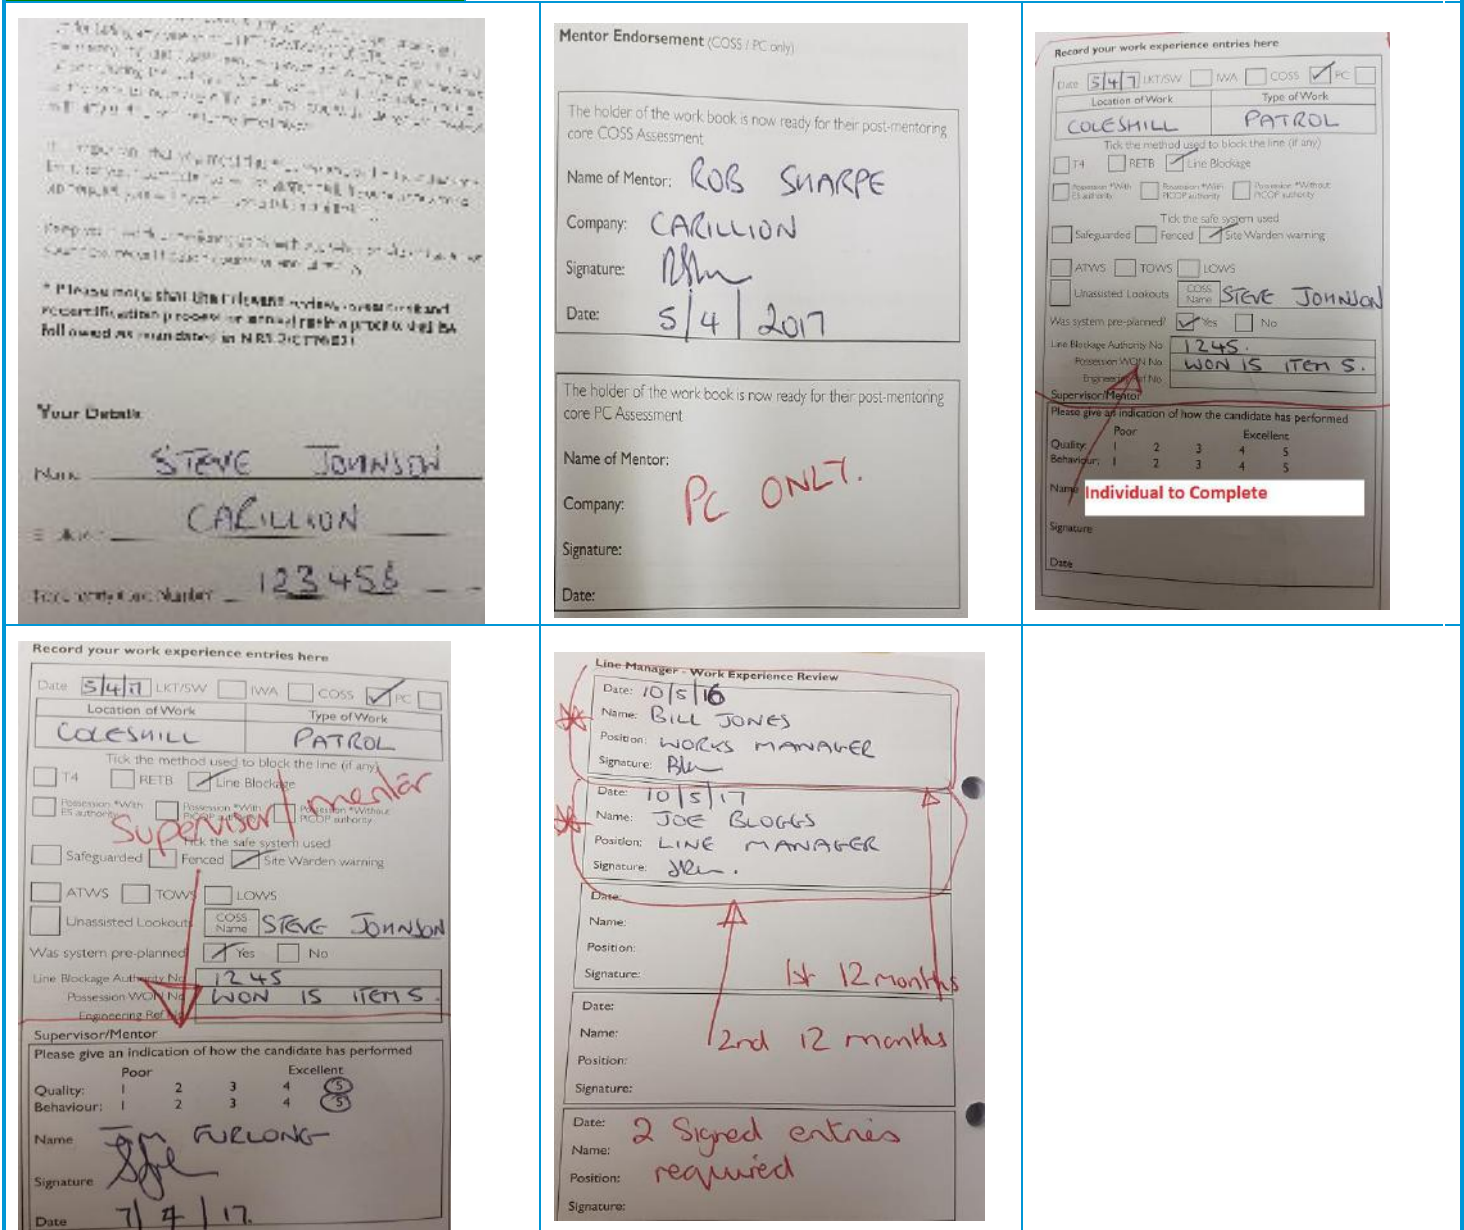 * Please note that the relevant review, assessment and
recertification process or annual review process shall be
followed as mandated in
Your Details
Name STEVE JOHNSON
CARILLION
Number
Mentor Endorsement (COSS / PC only)
The holder of the work book is now ready for their post-mentoring
core COSS Assessment
Name of Mentor: ROB SHARPE
Company: CARILLION
Signature:
Date: 5/4/2017
The holder of the work book is now ready for their post-mentoring
core PC Assessment
Name of Mentor:
Company: PC ONLY.
Signature:
Date:
Record your work experience entries here
Date 5/4/7 LKT/SW IWA COSS PC
Location of Work Type of Work
COLESHILL PATROL
Tick the method used to block the line (if any)
T4 RETB Line Blockage
Possession *With ES authority Possession *With PICOP authority Possession *Without PICOP authority
Tick the safe system used
Safeguarded Fenced Site Warden warning
ATWS TOWS LOWS
Unassisted Lookouts COSS Name STEVE JOHNSON
Was system pre-planned? Yes No
Line Blockage Authority No 1245.
Possession WON No WON IS ITEM 5.
Engineering Ref No
Supervisor/Mentor
Please give an indication of how the candidate has performed
Poor Excellent
Quality: 1 2 3 4 5
Behaviour: 1 2 3 4 5
Name Individual to Complete
Signature
Date
Record your work experience entries here
Date 5/4/17 LKT/SW IWA COSS PC
Location of Work Type of Work
COLESHILL PATROL
Tick the method used to block the line (if any)
T4 RETB Line Blockage
Possession *With ES authority Possession *With PICOP authority Possession *Without PICOP authority
Supervisor/mentor
Tick the safe system used
Safeguarded Fenced Site Warden warning
ATWS TOWS LOWS
Unassisted Lookouts COSS Name STEVE JOHNSON
Was system pre-planned Yes No
Line Blockage Authority No 1245
Possession WON No WON IS ITEM 5.
Engineering Ref No
Supervisor/Mentor
Please give an indication of how the candidate has performed
Poor Excellent
Quality: 1 2 3 4 5
Behaviour: 1 2 3 4 5
Name FURLONG
Signature
Date 7/4/17.
Line Manager - Work Experience Review
Date: 10/5/16
Name: BILL JONES
Position: WORKS MANAGER
Signature:
Date: 10/5/17
Name: JOE BLOGGS
Position: LINE MANAGER
Signature:
Date:
Name:
Position:
Signature: 1st 12 months
Date:
Name: 2nd 12 months
Position:
Signature:
Date: 2 Signed entries
Name:
Position: required
Signature: